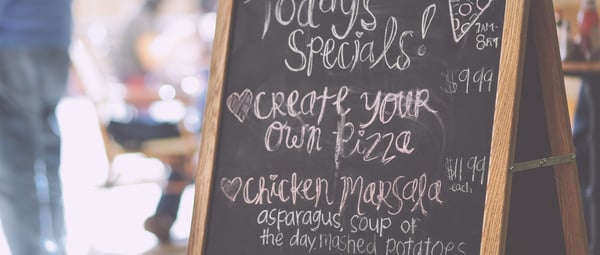 Today's
Specials!
7AM-
8AM
create your $9.99
own pizza
chicken Marsala $11.99
each
asparagus, soup of
the day, mashed potatoes